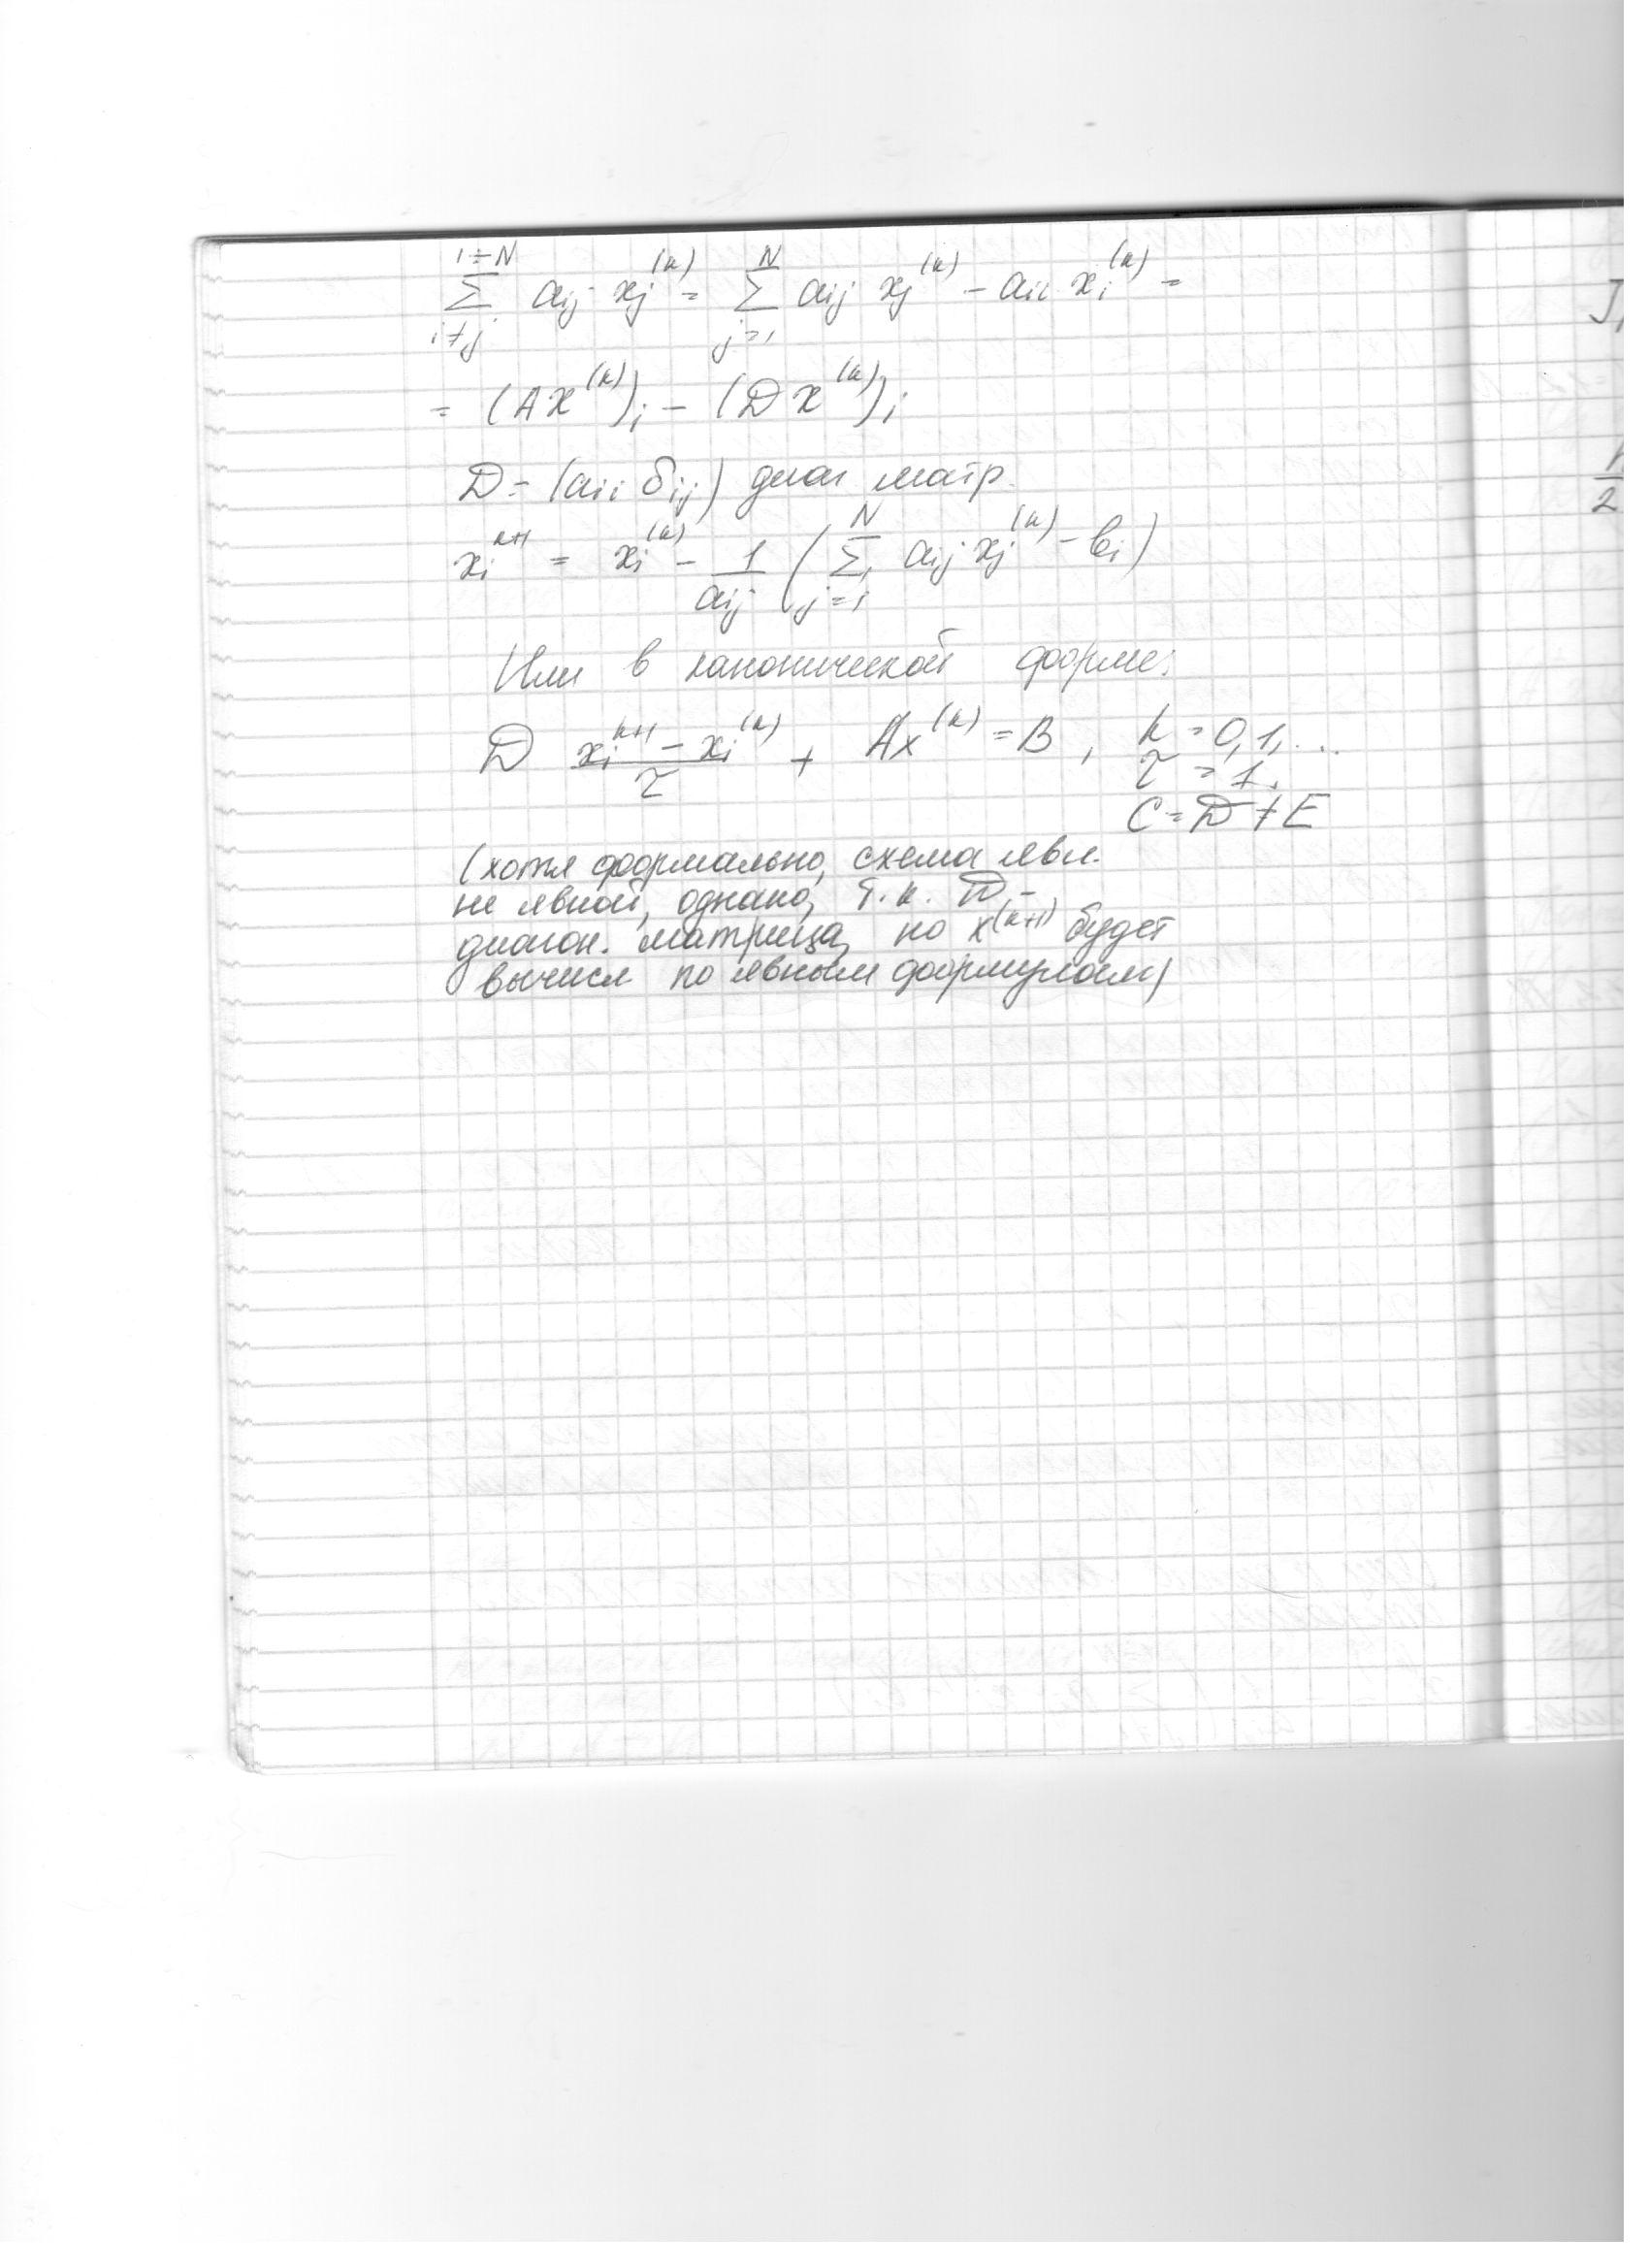 1÷N
Σ aij xj^(k) = Σ_{j=1}^{N} aij xj^(k) − aii xi^(k) =
i≠j
= (Ax^(k))i − (Dx^(k))i
D = (aii δij) диаг матр.
xi^{k+1} = xi^(k) − 1/aij (Σ_{j=1}^{N} aij xj^(k) − bi)
Или в канонической форме:
D (xi^{k+1} − xi^(k))/τ + Ax^(k) = B, k = 0,1,...
τ = 1.
C = D ≠ E
(хотя формально, схема явл.
не явной, однако, т.к. D –
диагон. матрица, но x^(k+1) будет
вычисл по явным формулам)